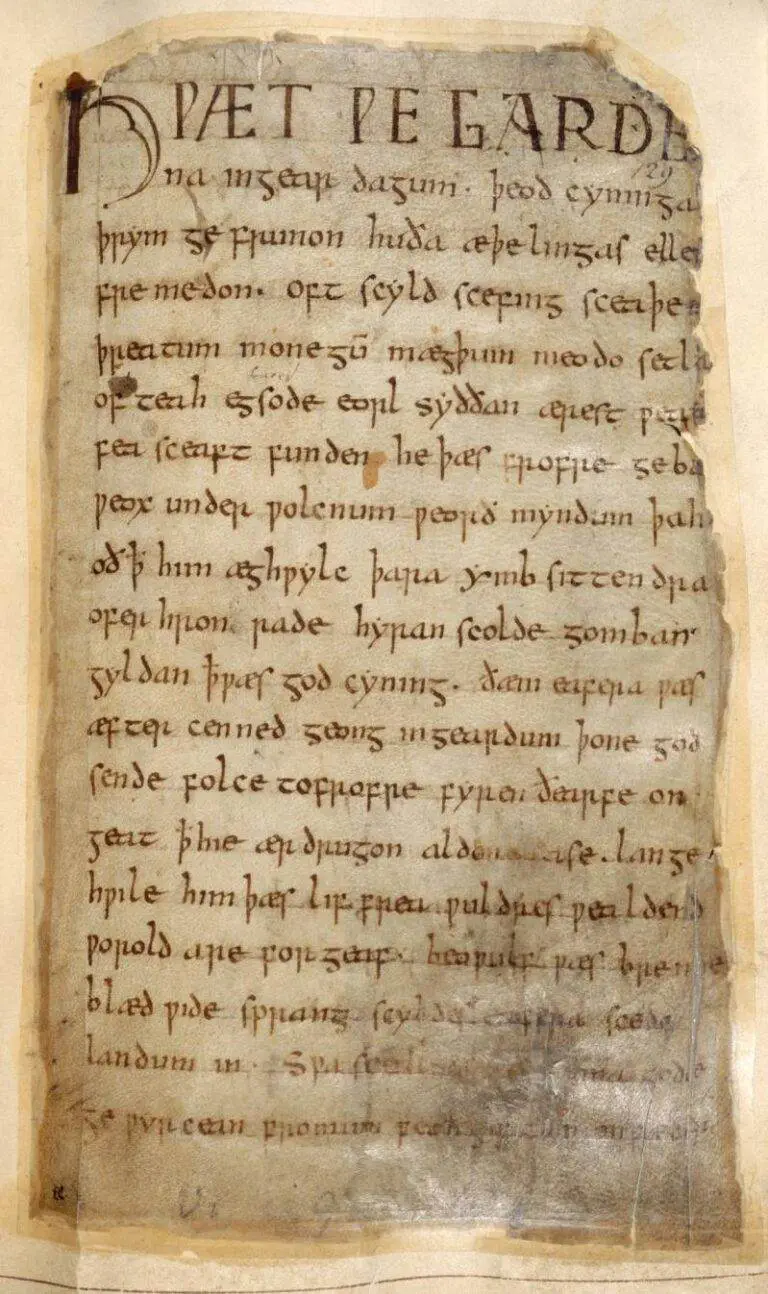 HǷÆT ǷE GARDE
129
na ingear dagum. þeod cyninga
þrym ge frunon huða æþelingas elle
fre medon. oft scyld scefing sceaþe
þreatum monegū mægþum meodo setla
of teah egsode eorl syððan ærest ƿear
fea sceaft funden he þæs frofre geba
ƿeox under ƿolcnum ƿeorð myndum þah
oð ꝥ him æghƿylc þara ymb sittendra
ofer hron rade hyran scolde gomban
gyldan ꝥ ƿæs god cyning. ðæm eafera ƿæs
æfter cenned geong ingeardum þone god
sende folce tofrofre fyren ðearfe on
geat ꝥ hie ær drugon lange
hƿile him þæs lif frea ƿuldres ƿealdend
ƿorold are for geaf. beoƿulf ƿæs breme
blæd ƿide sprang scyldes eafera scede
landum in. Sƿa guma gode
ge ƿyrcean fromum